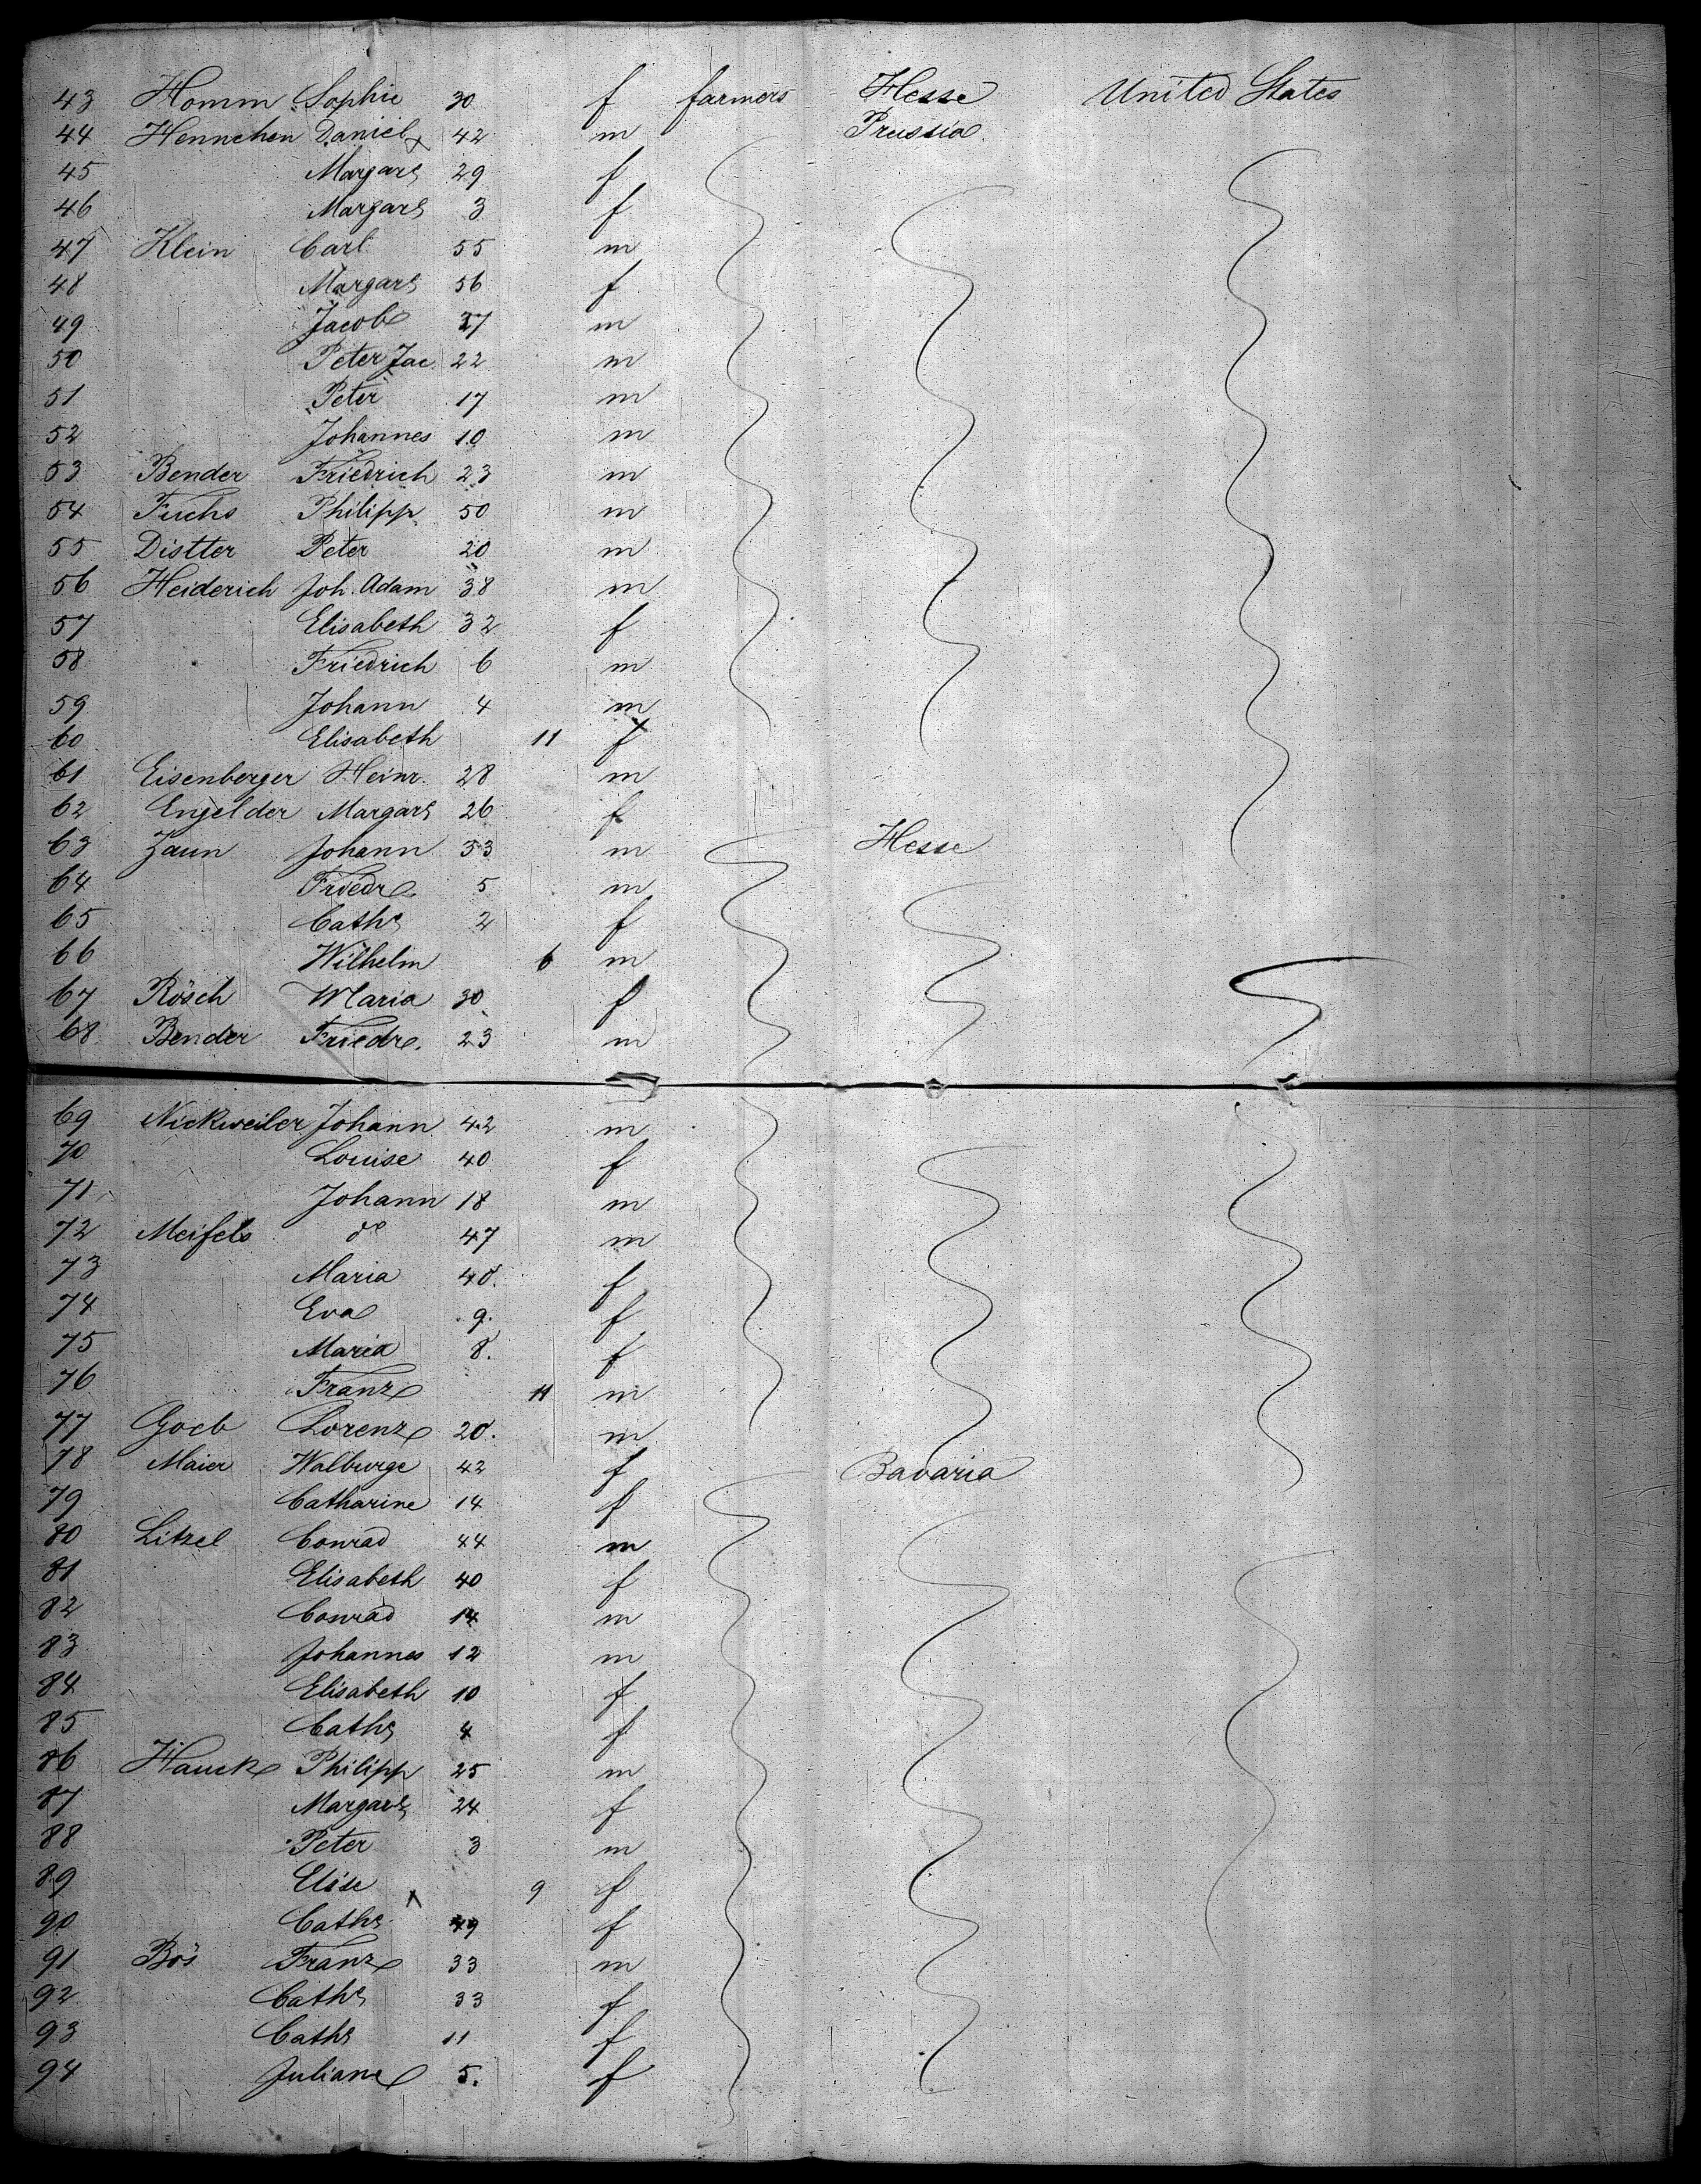 43 Homm Sophie 30 f farmers Hesse United States
44 Hennchen Daniel 42 m Prussia
45 Margar 29 f
46 Margar 3 f
47 Klein Carl 55 m
48 Margar 56 f
49 Jacob 27 m
50 Peter Jac. 22 m
51 Peter 17 m
52 Johannes 10 m
53 Bender Friedrich 23 m
54 Fuchs Philipp 50 m
55 Distter Peter 20 m
56 Heiderich Joh. Adam 38 m
57 Elisabeth 32 f
58 Friedrich 6 m
59 Johann 4 m
60 Elisabeth 11 f
61 Eisenberger Heinr. 28 m
62 Engelder Margar 26 f
63 Zaun Johann 33 m Hesse
64 Friedr 5 m
65 Cath 2 f
66 Wilhelm 6 m
67 Rösch Maria 30 f
68 Bender Friedr. 23 m
69 Nickweiler Johann 42 m
70 Louise 40 f
71 Johann 18 m
72 Meifels do 47 m
73 Maria 40. f
74 Eva 9. f
75 Maria 8. f
76 Franz 11 m
77 Goeb Lorenz 20. m
78 Maier Walburge 42 f Bavaria
79 Catharine 14 f
80 Litzel Conrad 44 m
81 Elisabeth 40 f
82 Conrad 14 m
83 Johannes 12 m
84 Elisabeth 10 f
85 Cath 4 f
86 Hauck Philipp 25 m
87 Margar 24 f
88 Peter 3 m
89 Elise 9 f
90 Cath 49 f
91 Bös Franz 33 m
92 Cath 33 f
93 Cath 11 f
94 Juliane 5. f